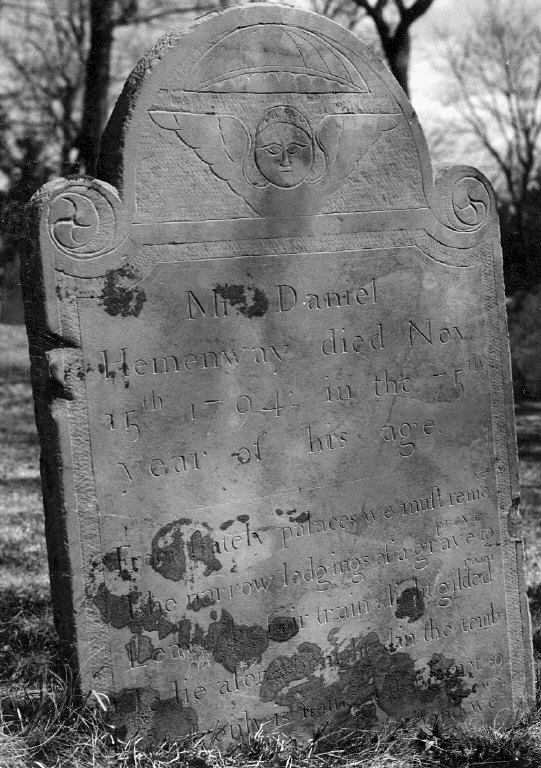 Mr. Daniel
Hemenway died Nov
15th 1794; in the 75th
year of his age.
From ſtately palaces we muſt remo
ve
The narrow lodgings of a grave to
prove
Leave fair train & light gilded
room
To lie alone benighted in the tomb
only is not so
we